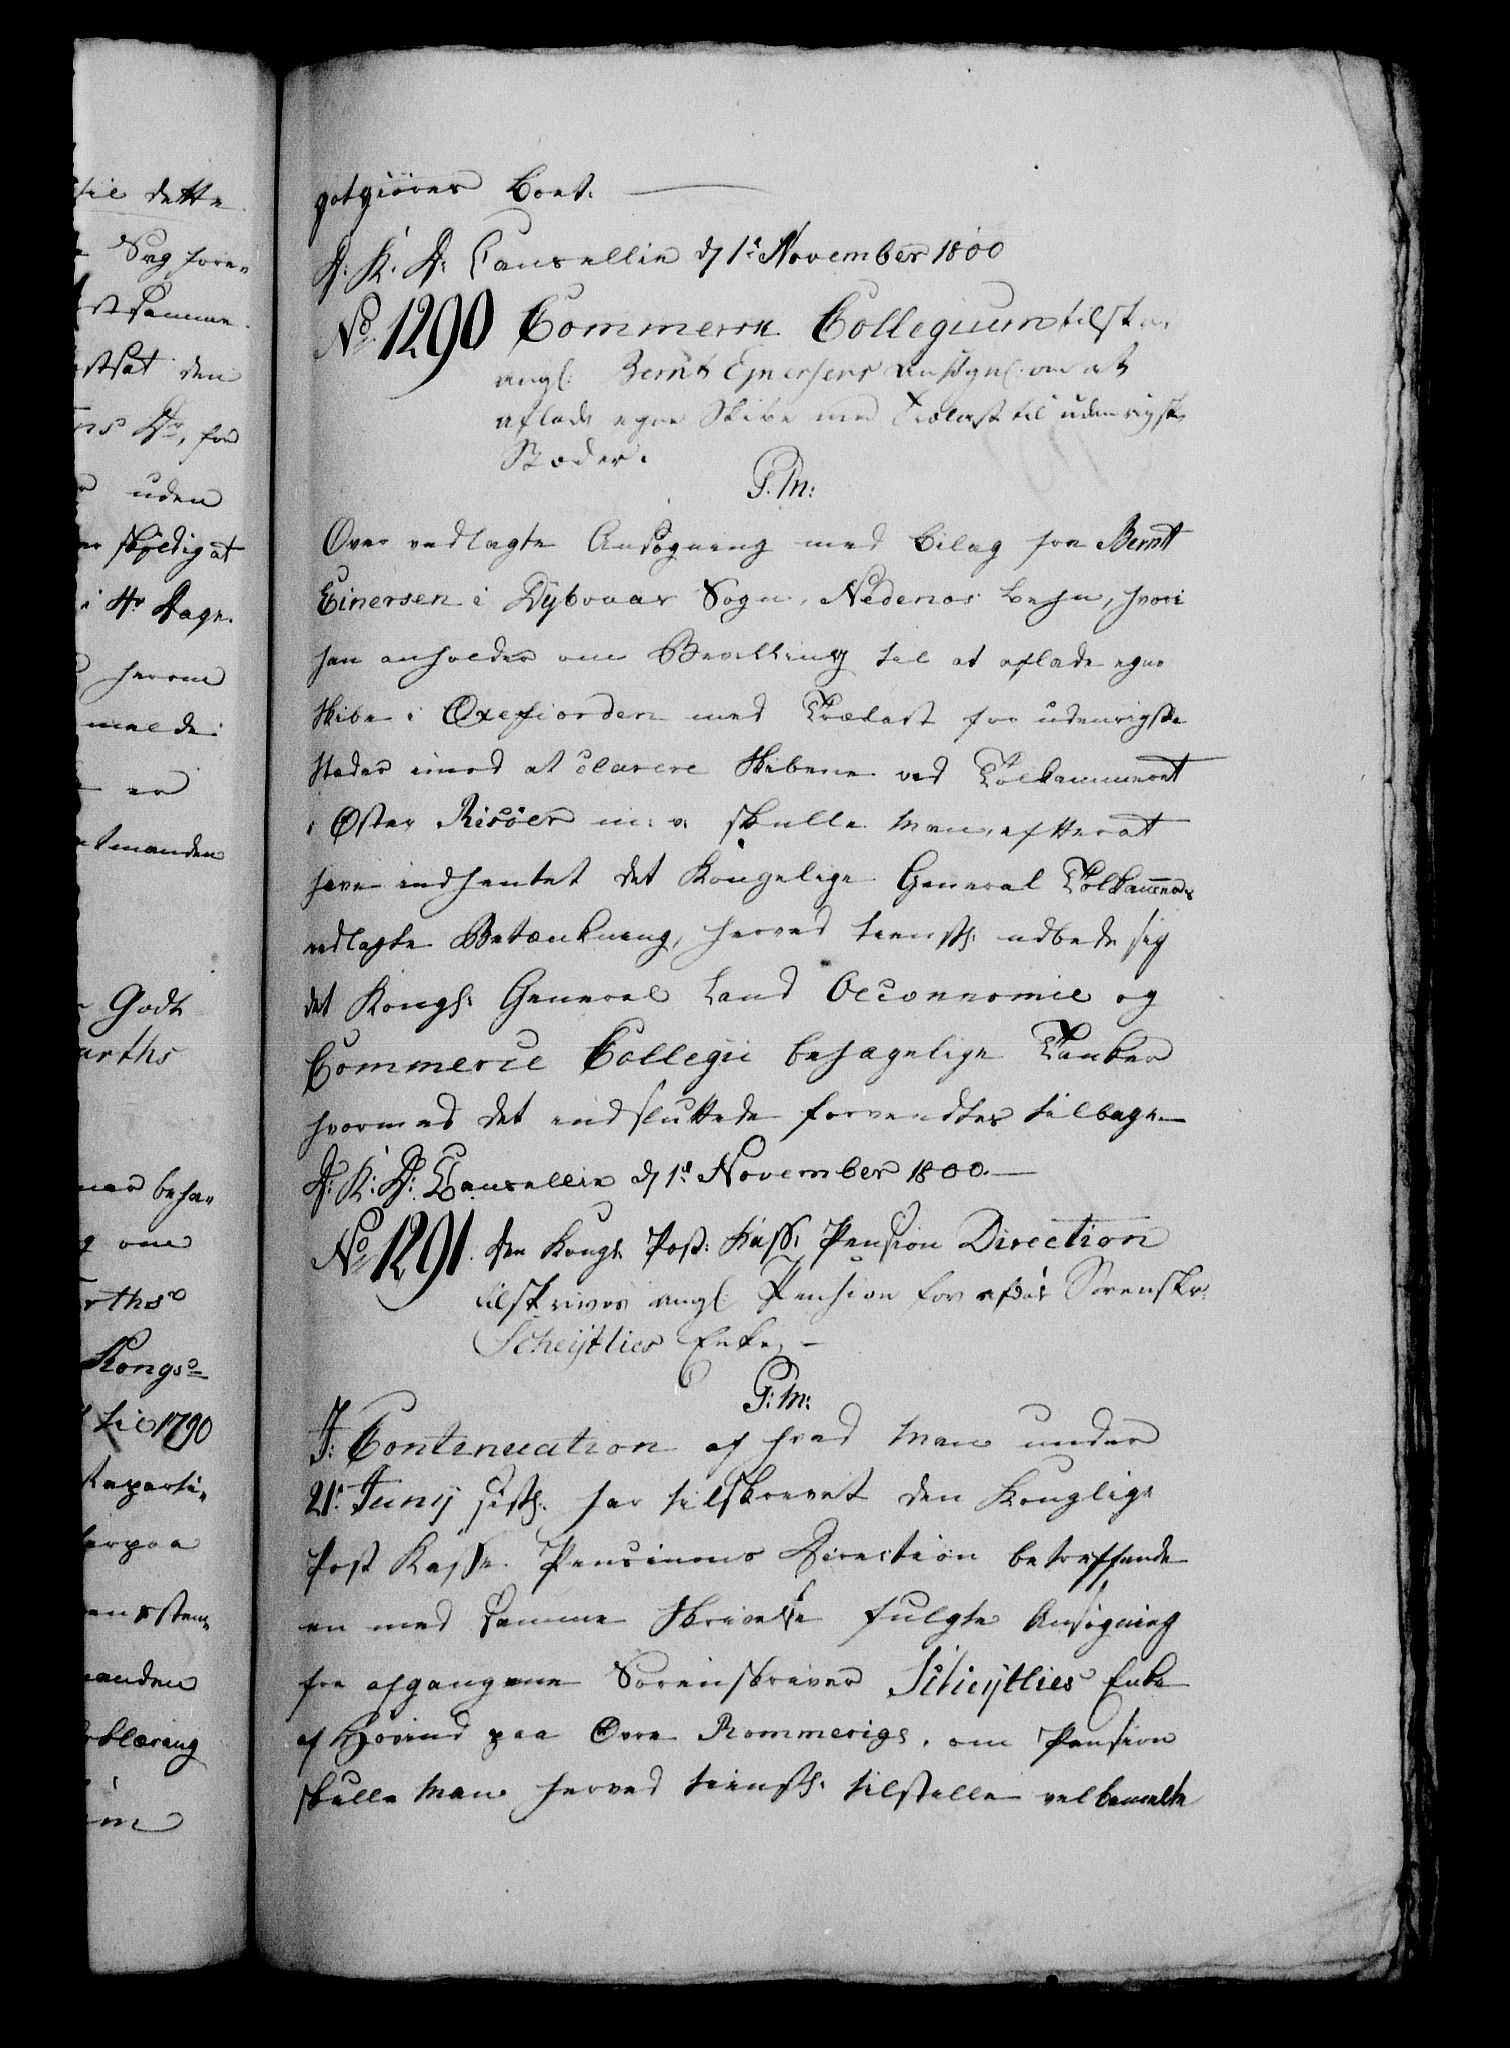 til dette
Sag fore-
samme
den
for
uden
skyldig at
i 4r Dage.
herom
melde
er
Amtmanden
Godt
arths
beha-
om
rths
Kongs
til 1790
Reparti-
herpaa
manden
rklæring
im
godgiöres Boet.
D: K: D: Cancellie d 1t November 1800
No 1290 Commerce Collegium tilskr.
angl: Bernt Ejnersens Ansøgn: om at
aflade egne Skibe med Trælast til udenrigske
Stæder.
P. M:
Over vedlagte Ansøgning med Bilag fra Bernt
Einersen i Dybvaar Sogn, Nedenes Lehn, hvori
han anholder om Bevilling til at aflade egne
Skibe i Oxefiorden med Trælast for udenrigske
Stæder imod at clarere Skibene ved Toldkammeret
i Øster Risöer m: v: skulle Man, efterat
have indhentet det Kongelige General Toldkammers
vedlagte Betænkning, herved tienstl: udbede sig
det Kongl: General Land Oeconomie og
Commerce Collegii behagelige Tanker
hvormed det indsluttede forventes tilbage.
D: K: D: Cancellie d 1t November 1800.
No 1291. Den Kongl: Post: Kass: Pension Direction
tilskrives angl: Pension for afdøe Sorenskr:
Scheÿtlies Enke.
P: M:
J: Continuation af hvad Man under
21t Junij sidstl: har tilskrevet den Kongelige
Post Kasse Pensions Direction betreffende
en med samme Skrivelse fulgte Ansøgning
fra afgangene Sorenskriver Scheÿtlies Enke
af Hovind paa Øvre Rommerige, om Pension
skulle Man herved tienstl: tilstille velbemelte